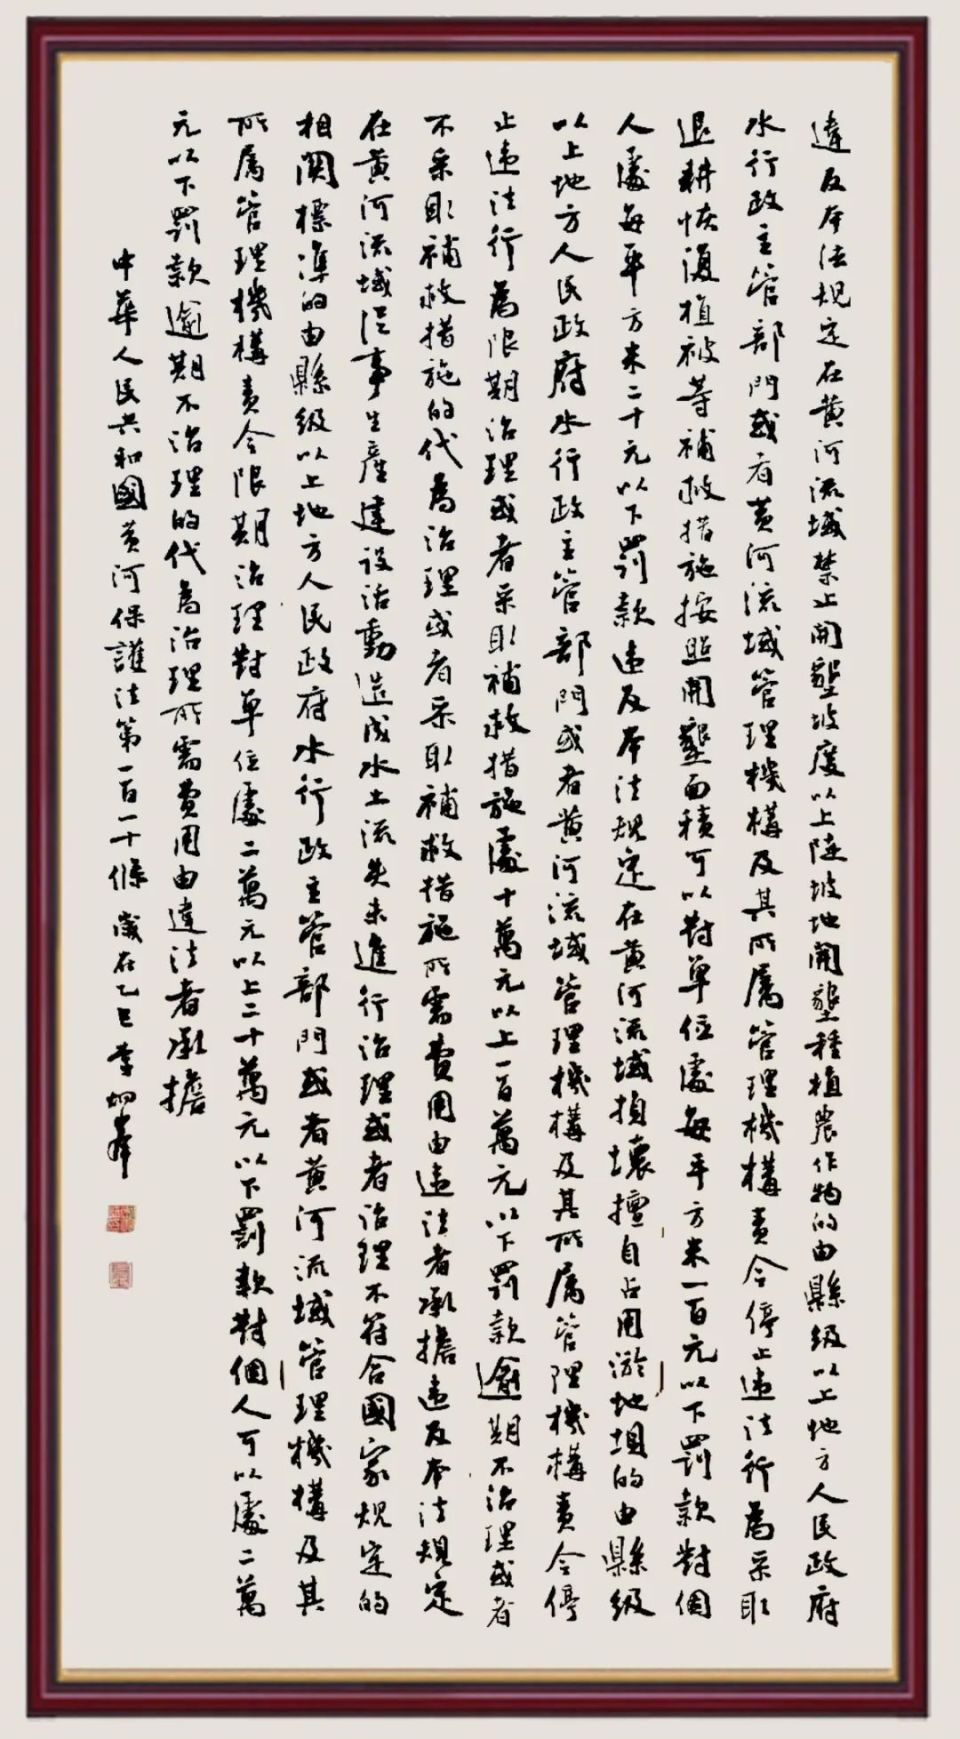 違反本法規定在黄河流域禁止開墾坡度以上陡坡地開墾種植農作物的由縣級以上地方人民政府
水行政主管部門或者黄河流域管理機構及其所屬管理機構責令停止違法行為采取
退耕恢復植被等補救措施按照開墾面積可以對單位處每平方米一百元以下罰款對個
人處每平方米二十元以下罰款違反本法規定在黄河流域損壞擅自占用淤地壩的由縣級
以上地方人民政府水行政主管部門或者黄河流域管理機構及其所屬管理機構責令停
止違法行為限期治理或者采取補救措施處十萬元以上一百萬元以下罰款逾期不治理或者
不采取補救措施的代為治理或者采取補救措施所需費用由違法者承擔違反本法規定
在黄河流域從事生產建設活動造成水土流失未進行治理或者治理不符合國家規定的
相關標準的由縣級以上地方人民政府水行政主管部門或者黄河流域管理機構及其
所屬管理機構責令限期治理對單位處二萬元以上二十萬元以下罰款對個人可以處二萬
元以下罰款逾期不治理的代為治理所需費用由違法者承擔
中華人民共和國黄河保護法第一百一十條 歲在乙巳 李炳軍